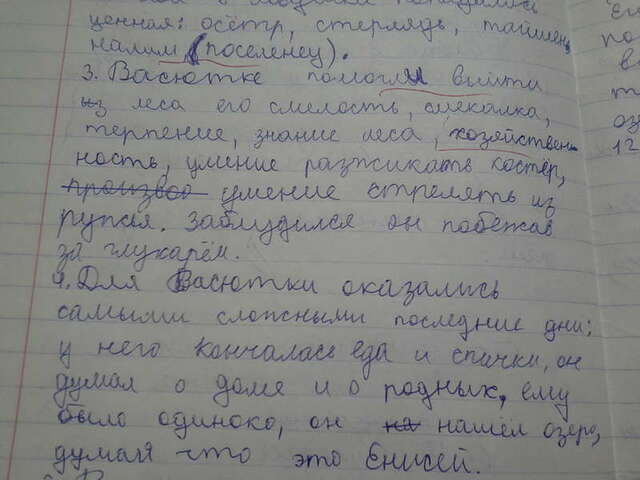 ценная: осётр, стерлядь, таймень,
налим (поселенец).
3. Васютке помогли выйти
из леса его смелость, смекалка,
терпение, знание леса, хозяйствен-
ность, умение разжикать костёр,
умение стрелять из
ружья. Заблудился он побежав
за глухарём.
4. Для Васютки оказались
самыми сложными последние дни:
у него кончалась еда и спички, он
думал о доме и о родных, ему
было одиноко, он нашёл озеро,
думал что это Енисей.